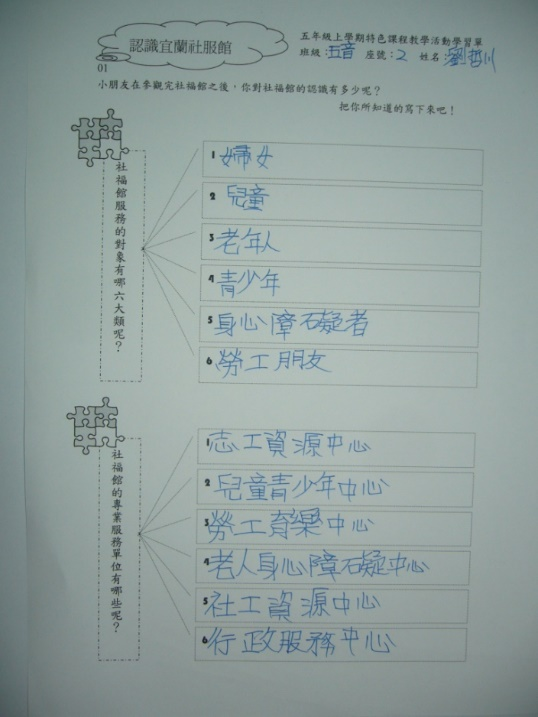 認識宜蘭社服館
五年級上學期特色課程教學活動學習單
班級：五音 座號：2 姓名：劉哲川
01
小朋友在參觀完社福館之後，你對社福館的認識有多少呢？
把你所知道的寫下來吧！
社福館服務的對象有哪六大類呢？
1 婦女
2 兒童
3 老年人
4 青少年
5 身心障礙者
6 勞工朋友
社福館的專業服務單位有哪些呢？
1 志工資源中心
2 兒童青少年中心
3 勞工育樂中心
4 老人身心障礙中心
5 社工資源中心
6 行政服務中心